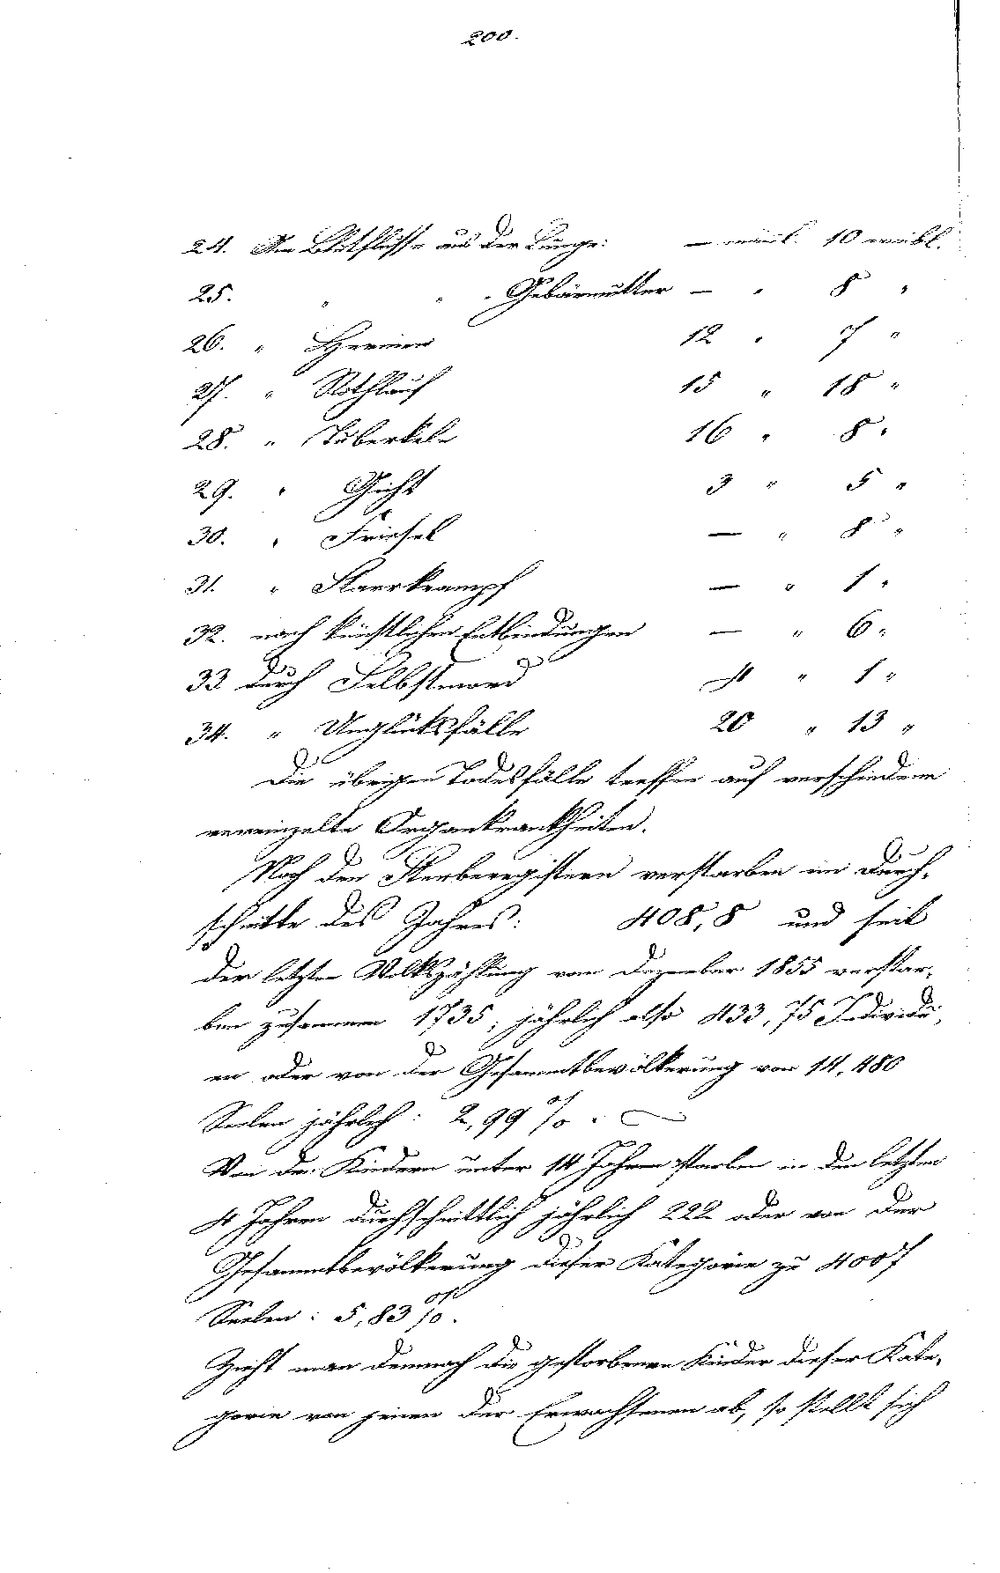 200.
24. Am Blutflusse aus der Lunge: — männl. 10 weibl.
25. " " " Gebärmutter — " 8 "
26. " Hernien 12 " 7 "
27. " Rothlauf 15 " 18 "
28. " Tuberkeln 16 " 8 "
29. " Gicht 3 " 5 "
30. " Friesel — " 8 "
31. " Starrkrampf — " 1 "
32. nach künstlichen Entbindungen — " 6 "
33. durch Selbstmord 4 " 1 "
34. " Unglücksfälle 20 " 13 "
Die übrigen Todesfälle treffen auf verschiedene
vereinzelte Organkrankheiten.
Nach den Sterberegistern verstarben im Durch-
schnitte des Jahres: 408,8 und seit
der letzten Volkszählung vom Dezember 1855 verstar-
ben zusammen 1735, jährlich also 433,75 Individu-
en oder von der Gesammtbevölkerung von 14,480
Seelen jährlich: 2,99 %.
Von den Kindern unter 14 Jahren starben in den letzten
4 Jahren durchschnittlich jährlich 222 oder von der
Gesammtbevölkerung dieser Kategorie zu 4007
Seelen: 5,83 %.
Zieht man demnach die gestorbenen Kinder dieser Kate-
gorie von jenen der Erwachsenen ab, so stellt sich